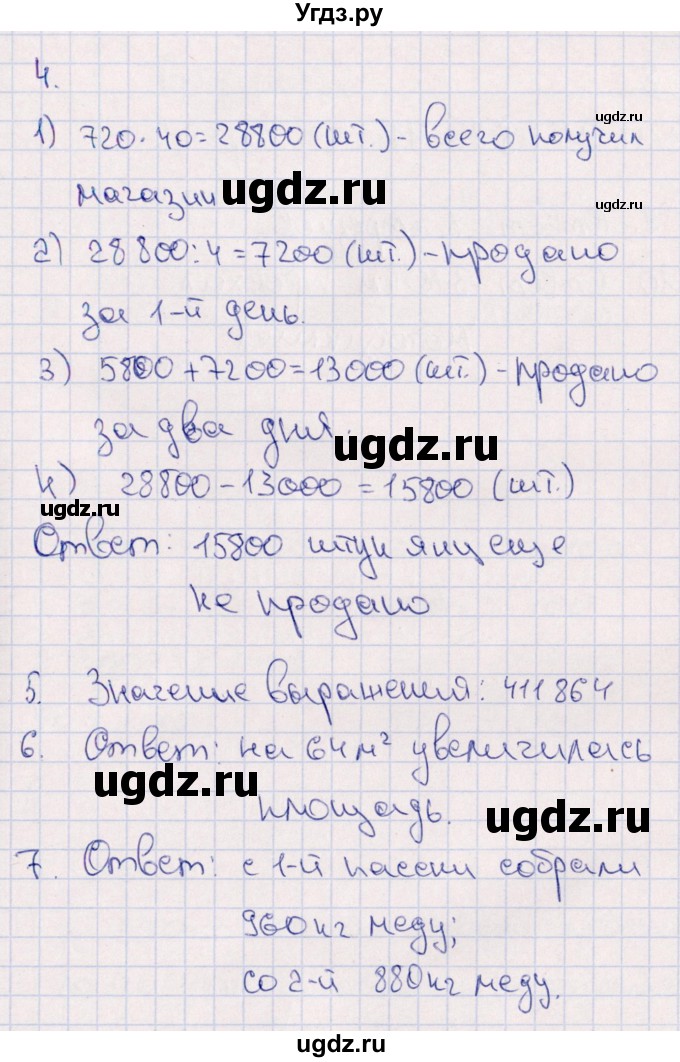 Угдз.ру
4.
ugdz.ru
1) 720·40=28800 (шт.) - всего получил
магазин ugdz.ru
ugdz.ru
2) 28 800:4=7200 (шт.) - продано
за 1-й день.
3) 5800+7200=13000 (шт.) - продано
за два дня.
ugdz.ru
4) 28800-13000=15800 (шт.)
ugdz.ru
Ответ: 15800 штук яиц еще
не продано
5. Значение выражения: 411 864
6. Ответ: на 64 м² увеличилась
ugdz.ru
площадь.
ugdz.ru
7. Ответ: с 1-й пасеки собрали
960 кг меду;
со 2-й 880 кг меду.
ugdz.ru